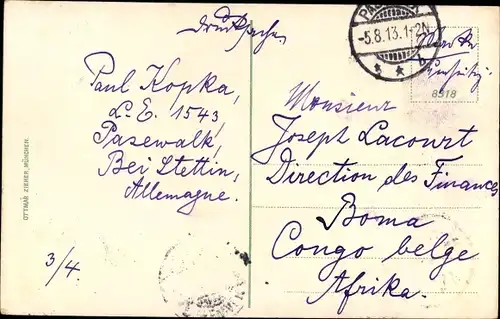 Drucksache
Paul Kopka,
L. E. 1543,
Pasewalk,
Bei Stettin,
Allemagne.
3/4.
OTTMAR ZIEHER, MÜNCHEN.
-5.8.13.1-2N
* * b
Marke
umseitig.
8518
Monsieur
Joseph Lacourt
Direction des Finances
Boma
Congo belge
Afrika.